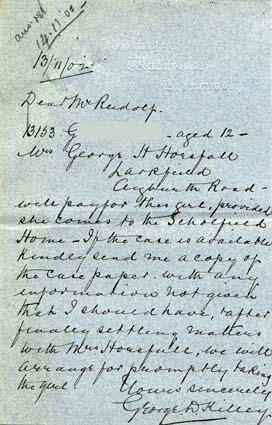 ansd
14.11.02
13/11/02
Dear Mr Rudolf.
13153 G - aged 12 -
Mrs George H Horsfall
Larkfield
Aigburth Road -
will pay for this girl, provided
she comes to the Scholfield
Home - If the case is available
kindly send me a copy of
the case paper with any
information not given
that I should have, & after
finally settling matters
with Mrs Horsfall, we will
arrange for promptly taking
the girl.
Yours sincerely
George D Killey